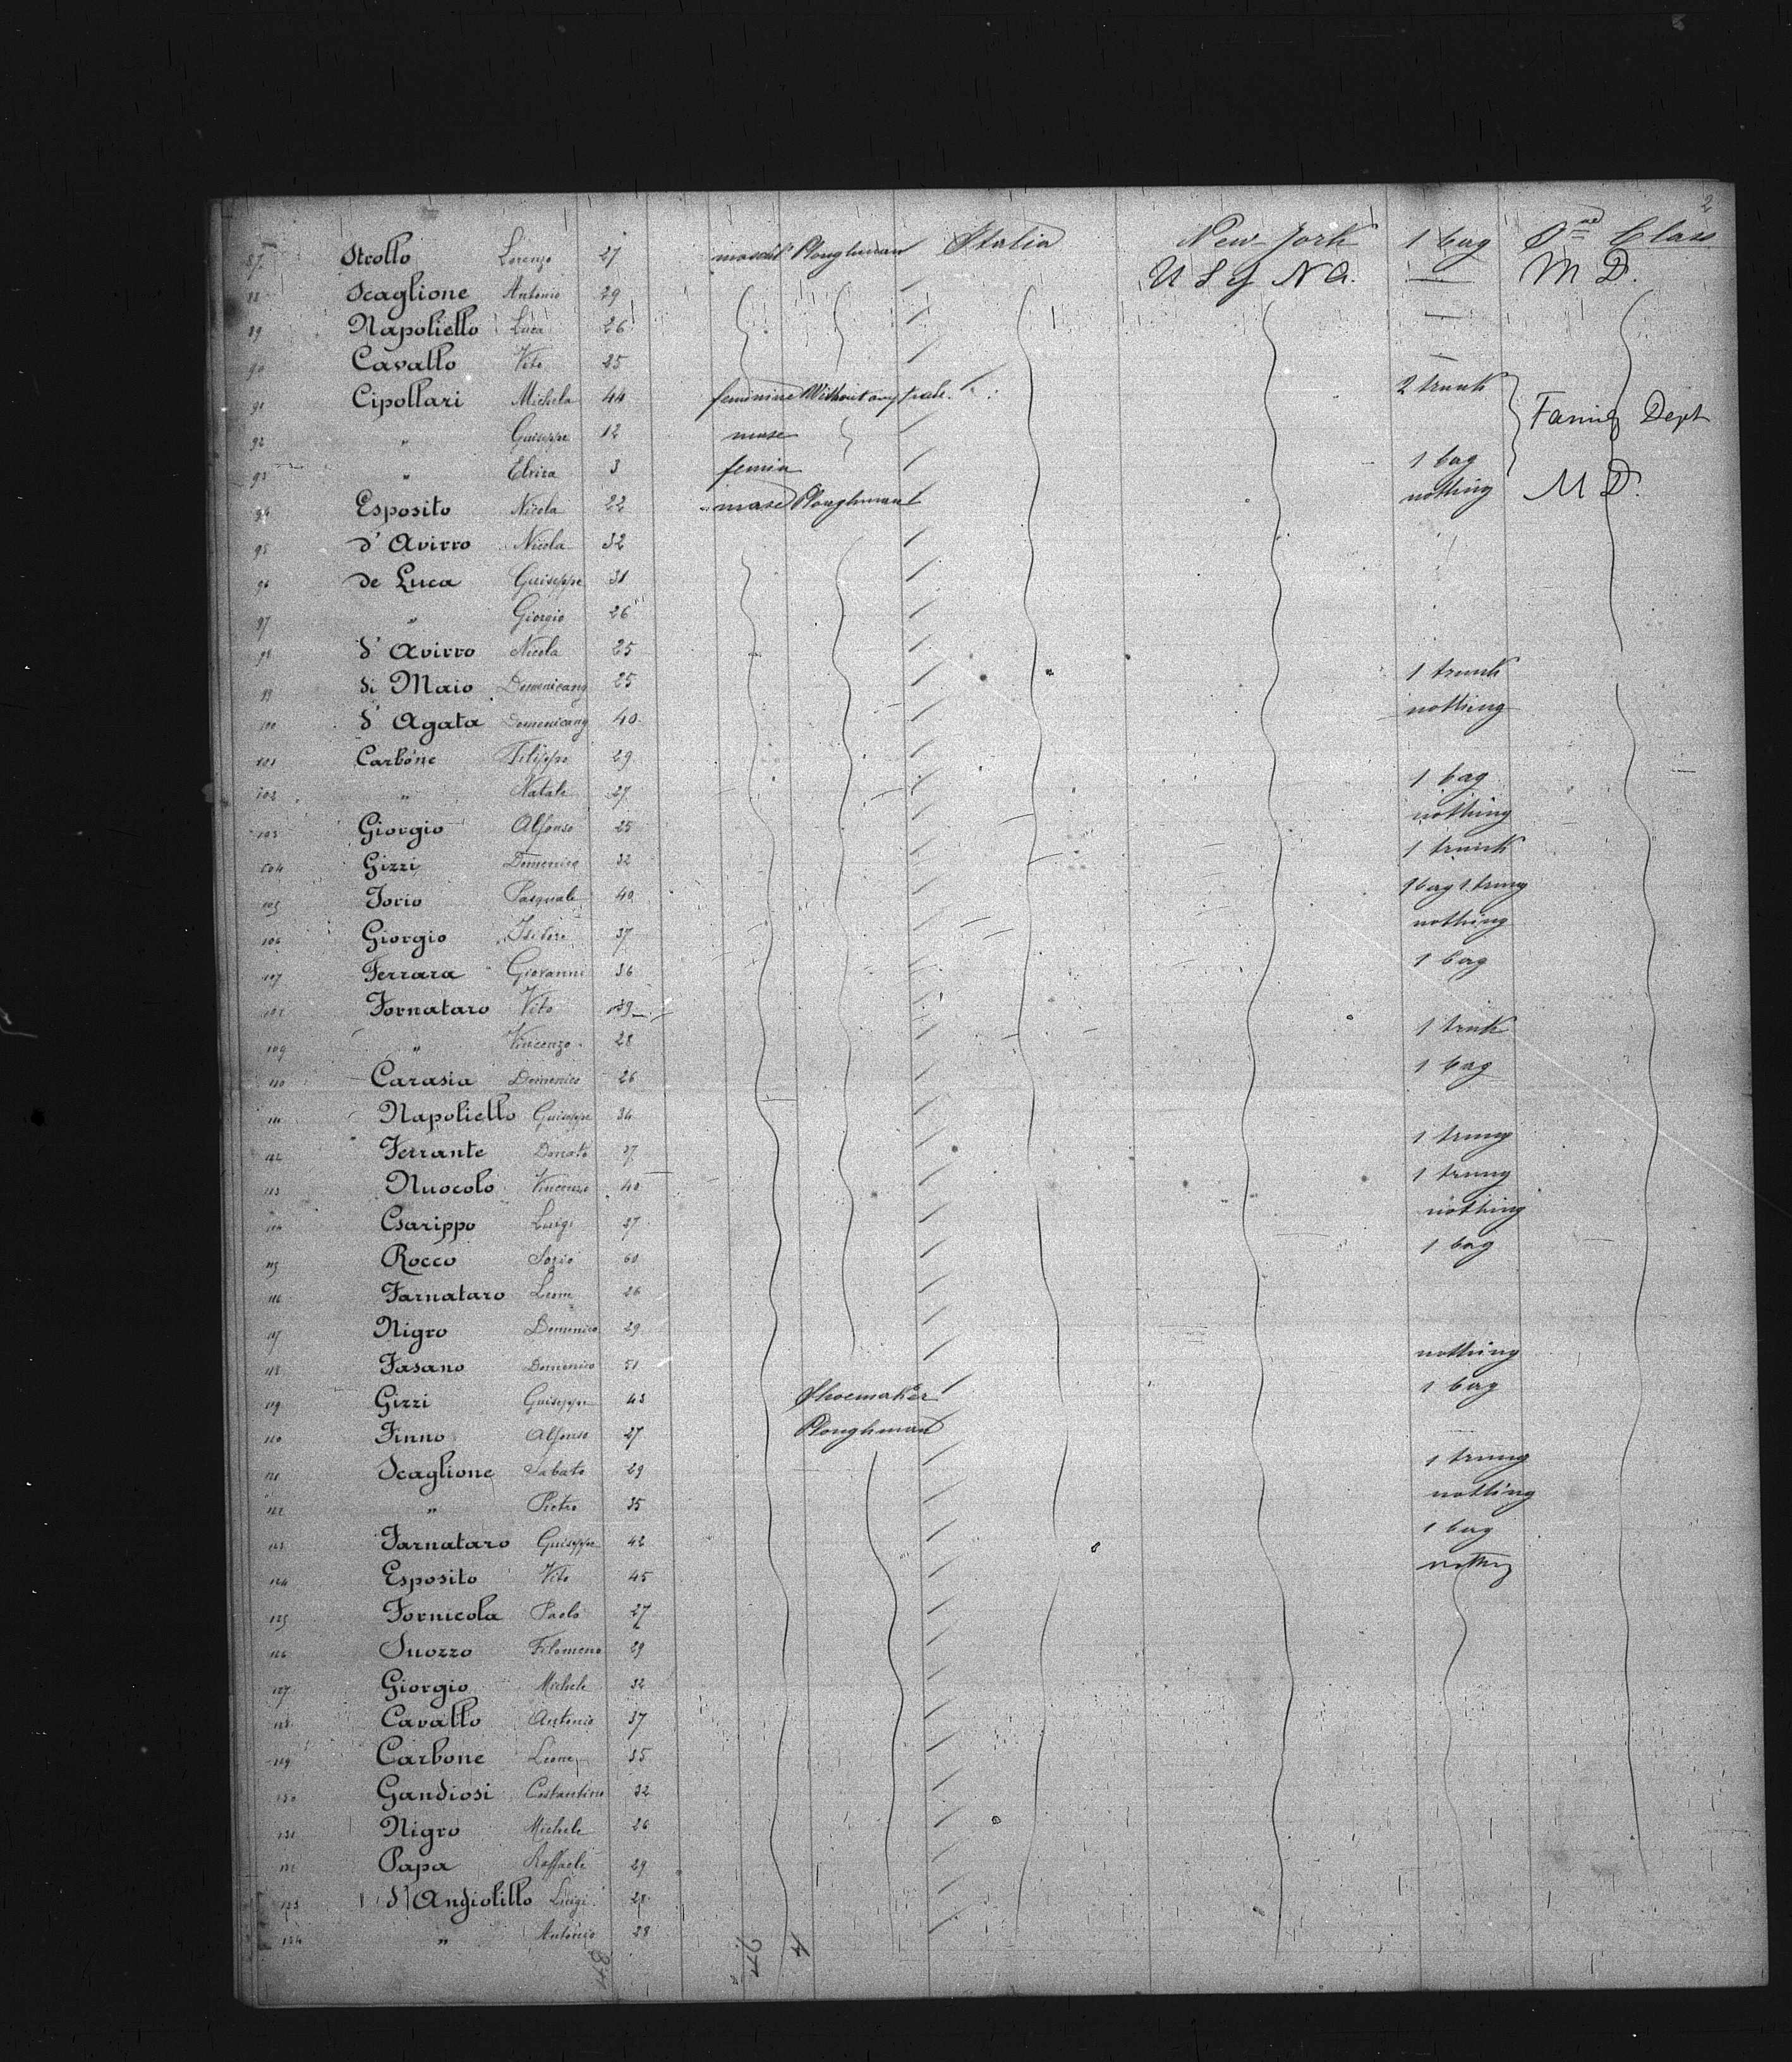 87 Strollo Lorenzo 27 mascul Ploughman Italia New-York 1 bag Class
88 Scaglione Antonio 29 U S of N A. — M D.
89 Napoliello Luca 26 —
90 Cavallo Vito 25 —
91 Cipollari Michela 44 feminine Without any trade 2 trunk
92 " Guiseppe 12 masc Family Dept
93 " Elvira 3 femin 1 bag
94 Esposito Nicola 22 masc Ploughman nothing M D.
95 d'Avirro Nicola 32
96 de Luca Guiseppe 31
97 " Giorgio 26
98 d'Avirro Nicola 25
99 di Maio Domenicang 25 1 trunk
100 d'Agata Domenicang 40 nothing
101 Carbone Filippo 29
102 " Natale 27 1 bag
103 Giorgio Alfonso 25 nothing
104 Gizzi Domenico 32 1 trunk
105 Iorio Pasquale 40 1 bag 1 trung
106 Giorgio Isidoro 37 nothing
107 Ferrara Giovanni 36 1 bag
108 Fornataro Vito 39
109 " Vincenzo 28 1 trnk
110 Carasia Domenico 26 1 bag
111 Napoliello Guiseppe 34
112 Ferrante Donato 37 1 trung
113 Nuocolo Vincenzo 40 1 trung
114 Carippo Luigi 27 nothing
115 Rocco Sozio 60 1 bag
116 Farnataro Leone 26
117 Nigro Domenico 29
118 Fasano Domenico 51 nothing
119 Gizzi Guiseppe 43 Shoemaker 1 bag
120 Finno Alfonso 27 Ploughman
121 Scaglione Sabato 29 1 trung
122 " Pietro 35 nothing
123 Farnataro Guiseppe 42 1 bag
124 Esposito Vito 45 nothing
125 Fornicola Paolo 27
126 Suozzo Filomeno 29
127 Giorgio Michele 32
128 Cavallo Antonio 37
129 Carbone Leone 35
130 Gandiosi Costantino 32
131 Nigro Michele 26
132 Papa Raffaele 29
133 d'Andiolillo Luigi 28
134 " Antonio 28